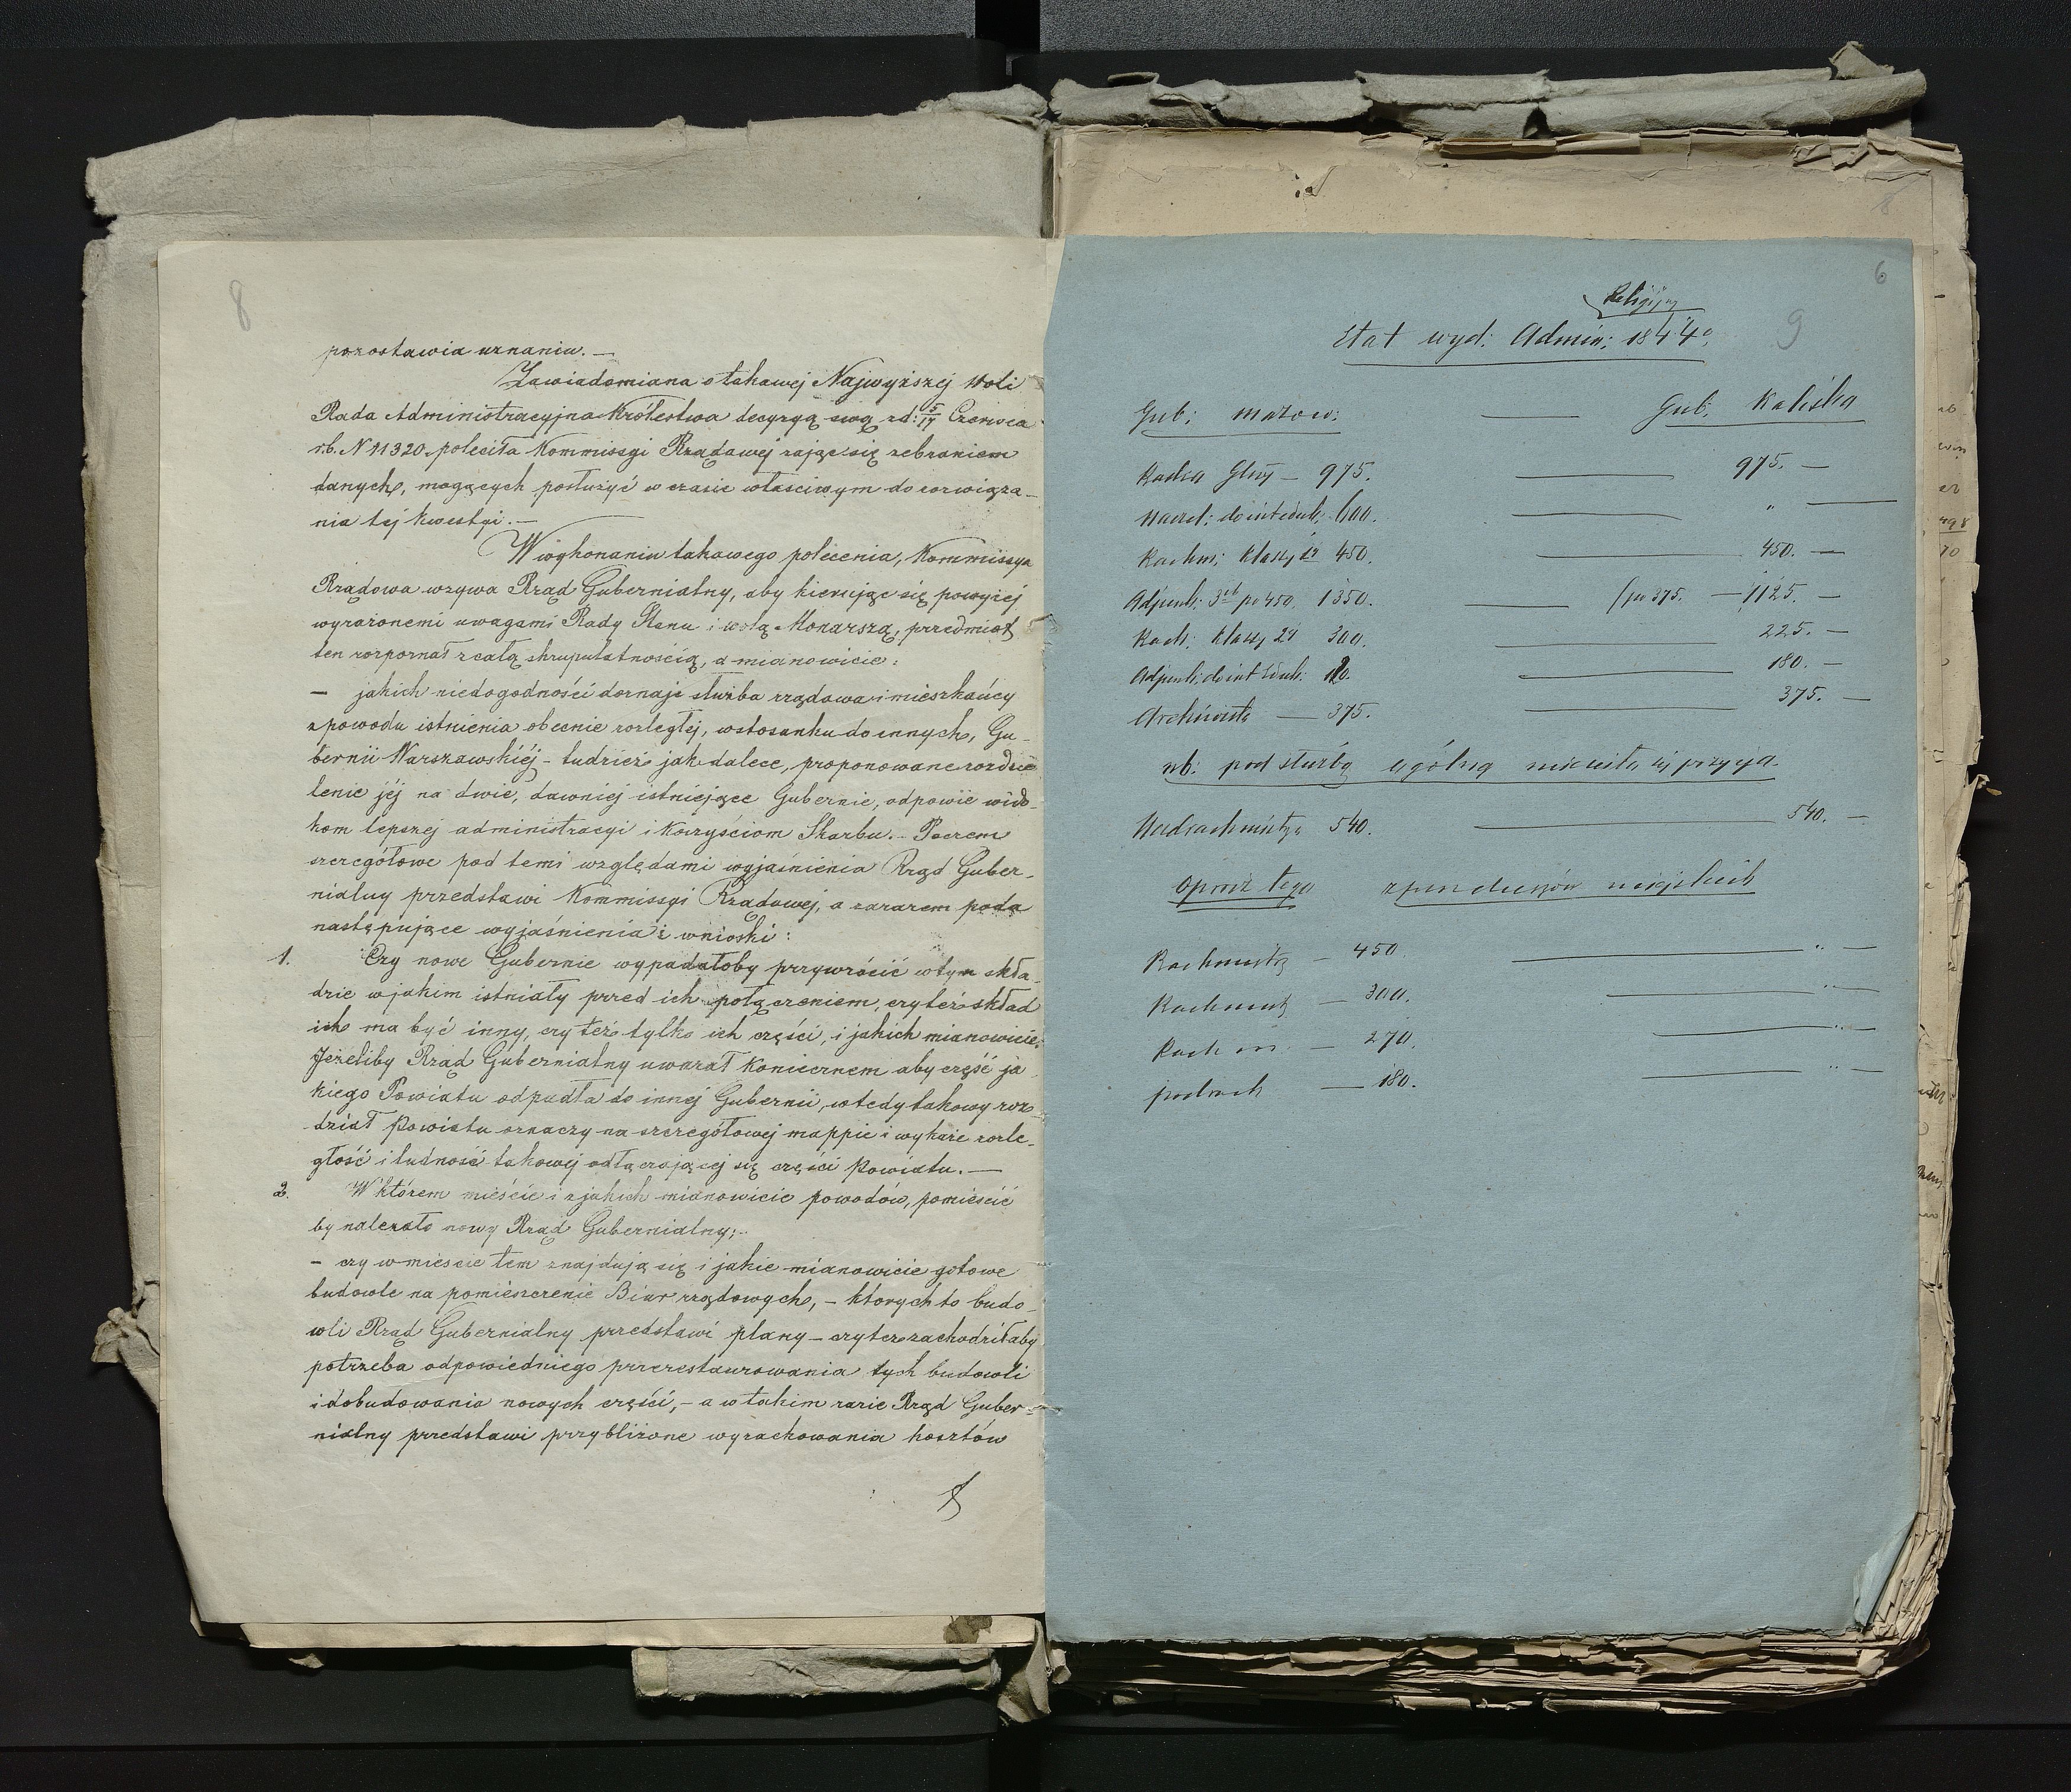 8
pozostawia uznaniu. —
Zawiadomiana o takowej Najwyższej Woli
Rada Administracyjna Królestwa decyzyą swą z d: 5/17 Czerwca
r.b. N 11320 poleciła Kommissyi Rządowej zająć się zebraniem
danych, mogących posłużyć w czasie właściwym do rozwiąza-
nia tej kwestyi. —
W wykonaniu takowego polecenia, Kommissya
Rządowa wzywa Rząd Gubernialny, aby kierując się powyżej
wyrażonemi uwagami Rady Stanu i wolą Monarszą, przedmiot
ten rozpoznał z całą skrupulatnością, a mianowicie:
— jakich niedogodności doznaje służba rządowa i mieszkańcy
z powodu istnienia obecnie rozległej, w stosunku do innych, Gu-
bernii Warszawskiéj — tudzież jak dalece, proponowane rozdzie
lenie jéj na dwie, dawniej istniejące Gubernie, odpowie wido-
kom lepszej administracyi i korzyściom Skarbu. — Poczem
szczegółowe pod temi względami wyjaśnienia Rząd Guber-
nialny przedstawi Kommissyi Rządowej, a zarazem poda
następujące wyjaśnienia i wnioski:
1. Czy nowe Gubernie wypadałoby przywrócić w tym skła-
dzie w jakim istniały przed ich połączeniem, czy też skład
ich ma być inny, czy też tylko ich części, i jakich mianowicie;
Jeżeliby Rząd Gubernialny uważał koniecznem aby część ja
kiego Powiatu odpadła do innej Gubernii, wtedy takowy roz-
dział Powiatu oznaczy na szczegółowej mappie i wykaże rozle-
głość i ludność takowej odłączającej się części Powiatu. —
2. W którem mieście i z jakich mianowicie powodów, pomieścić
by należało nowy Rząd Gubernialny; —
— czy w mieście tem znajdują się i jakie mianowicie gotowe
budowle na pomieszczenie Biur rządowych, — których to budo-
wli Rząd Gubernialny przedstawi plany — czy też zachodziłaby
potrzeba odpowiedniego przerestaurowania tych budowli
i dobudowania nowych części, — a w takim razie Rząd Guber-
nialny przedstawi przybliżone wyrachowania kosztów
6
9
Religijny
Etat wyd: Admin: 1844o
Gub: Mazow: — Gub: Kaliska
Radca Głwy — 975. — 975. —
Naczel: do int: duch: 600. — " —
Rachm: klassy 1éj 450. — 450. —
Adjunk: 3ch po 450. 1350. — (po 375. — 1125. —
Rach: klassy 2éj 300. — 225. —
Adjunk: do int: duch: — 180. —
Archiwista — 375. — 375. —
nb: pod służbą ogólną
Nadrachmistrz 540. — 540. —
Oprócz tego z funduszów miejskich
Rachmistrz — 450 — " —
Rachmistrz — 300. — " —
Rachm. — 270. — " —
podrach — 180. — " —